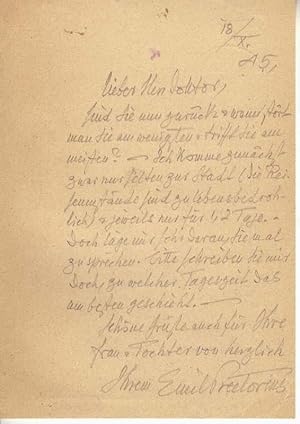 18/IX.
45,
Lieber Herr Doktor,
sind Sie nun zurück & wann stört
man Sie am wenigsten & trifft Sie am
meisten? — Ich komme zunächst
zwar nur selten zur Stadt (die Rei-
seumstände sind zu lebensbedroh-
lich) & jeweils nur für 1-2 Tage. –
Doch läge mir sehr daran, Sie mal
zu sprechen. Bitte schreiben Sie mir
doch, zu welcher Tageszeit das
am besten geschieht. —
Schöne Grüße auch für Ihre
Frau & Tochter von herzlich
Ihrem Emil Preetorius